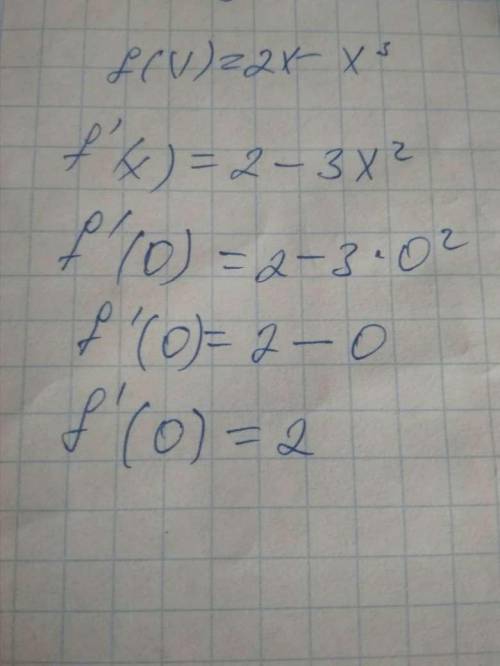 f(v)=2x-x³
f'(x)=2-3x²
f'(0)=2-3·0²
f'(0)=2-0
f'(0)=2